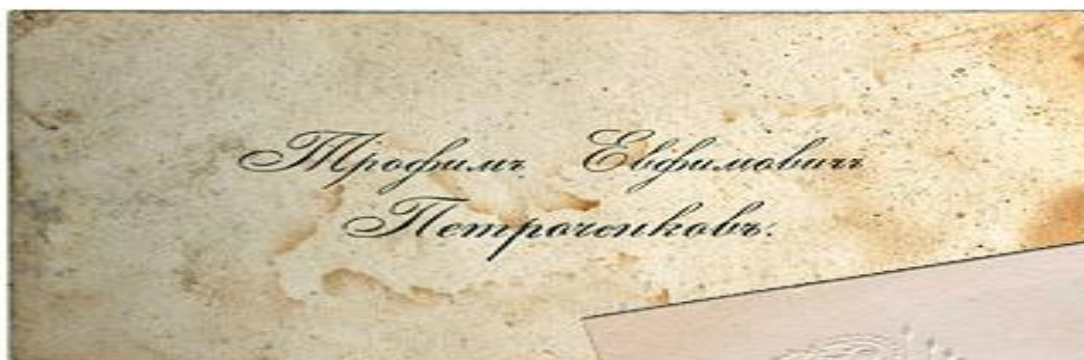 Трофимъ Евфимовичъ
Петроченковъ.